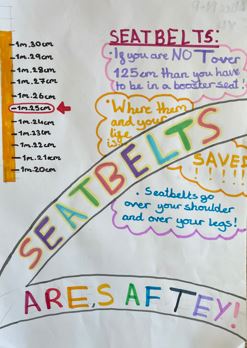 SEATBELTS:
• If you are NOT over
125cm than you have
to be in a booster seat!
1m.30cm
1m.29cm
1m.28cm
1m.27cm
1m.26cm
1m.25cm
1m.24cm
1m.23cm
1m.22cm
1m.21cm
1m.20cm
• Where them
and your
life
is
SEATBELTS
SAVES
• Seatbelts go
over your shoulder
and over your legs!
ARE,S AFTEY!